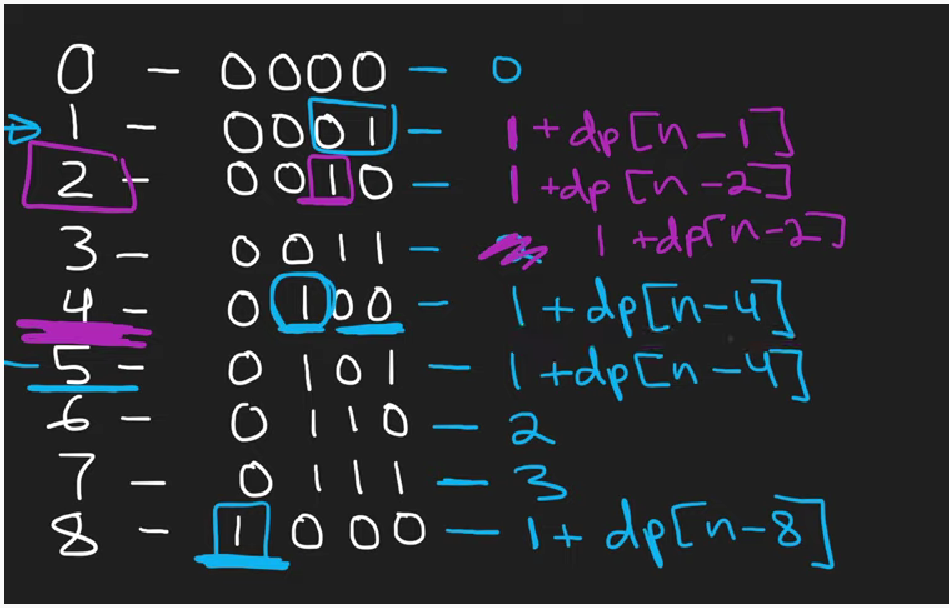 0 - 0000 - 0
1 - 0001 - 1 + dp[n-1]
2 - 0010 - 1 + dp[n-2]
3 - 0011 - 1 + dp[n-2]
4 - 0100 - 1 + dp[n-4]
5 - 0101 - 1 + dp[n-4]
6 - 0110 - 2
7 - 0111 - 3
8 - 1000 - 1 + dp[n-8]